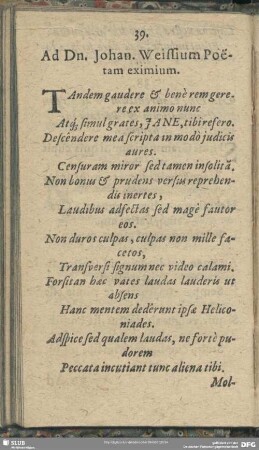 39.
Ad Dn. Johan. Weissium Poë-
tam eximium.
TAndem gaudere & benè rem gere-
re ex animo nunc
Atq́; simul grates, JANE, tibi refero.
Descendere mea scripta in modò judicis
aures.
Censuram miror sed tamen insolitã.
Non bonus & prudens versus reprehen-
dis inertes,
Laudibus adfectas sed magè fautor
eos.
Non duros culpas, culpas non mille fa-
cetos,
Transversi signum nec video calami.
Forsitan hac vates laudas lauderis ut
absens
Hanc mentem dederunt ipsæ Helico-
niades.
Adspice sed qualem laudas, ne fortè pu-
dorem
Peccata incutiant tunc aliena tibi.
Mol-
SLUB
DFG